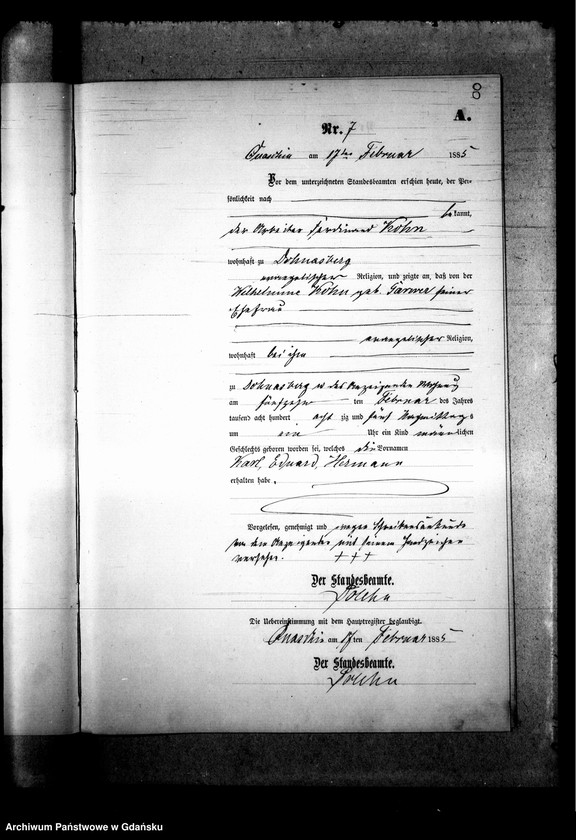 8
A.
Nr. 7
Quaschin am 17ten Februar 1885
Vor dem unterzeichneten Standesbeamten erschien heute, der Per-
sönlichkeit nach
bekannt,
der Arbeiter Ferdinand Köhn
wohnhaft zu Dohnasberg
evangelischer Religion, und zeigte an, daß von der
Wilhelmine Köhn geb. seiner
Ehefrau
evangelischer Religion,
wohnhaft bei ihm
zu Dohnasberg in des Anzeigenden Wohnung
am fünfzehn ten Februar des Jahres
tausend acht hundert acht zig und fünf Nachmittags
um ein Uhr ein Kind männlichen
Geschlechts geboren worden sei, welches die Vornamen
Karl, Eduard, Hermann
erhalten habe.
Vorgelesen, genehmigt und wegen Schreibensunkunde
von dem Anzeigenden mit seinem Handzeichen
versehen. + + +
Der Standesbeamte.
Die Uebereinstimmung mit dem Hauptregister beglaubigt.
Quaschin am 17ten Februar 1885
Der Standesbeamte.
Archiwum Państwowe w Gdańsku